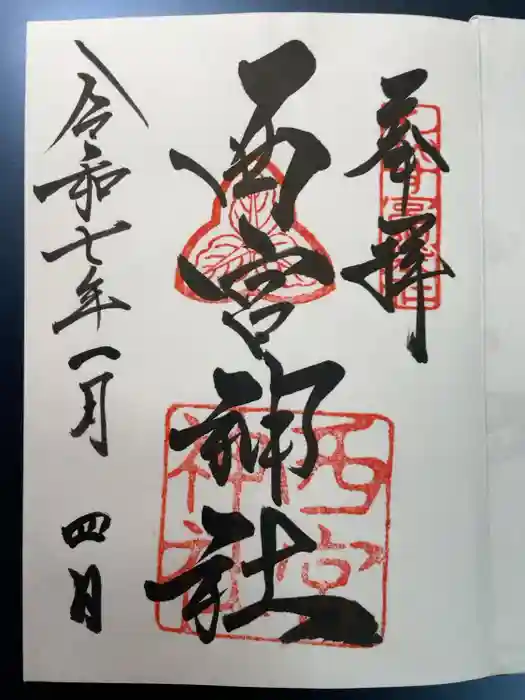 奉拝
西宮神社
西宮
神社
令和七年一月四日